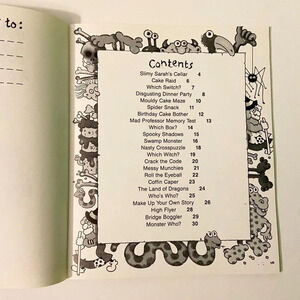 to:
Contents
Slimy Sarah's Cellar 4
Cake Raid 6
Which Switch? 7
Disgusting Dinner Party 8
Mouldy Cake Maze 10
Spider Snack 11
Birthday Cake Bother 12
Mad Professor Memory Test 13
Which Box? 14
Spooky Shadows 15
Swamp Monster 16
Nasty Crosspuzzle 18
Which Witch? 19
Crack the Code 20
Messy Munchies 21
Roll the Eyeball 22
Coffin Caper 23
The Land of Dragons 24
Who's Who? 25
Make Up Your Own Story 26
High Flyer 28
Bridge Boggler 29
Monster Who? 30